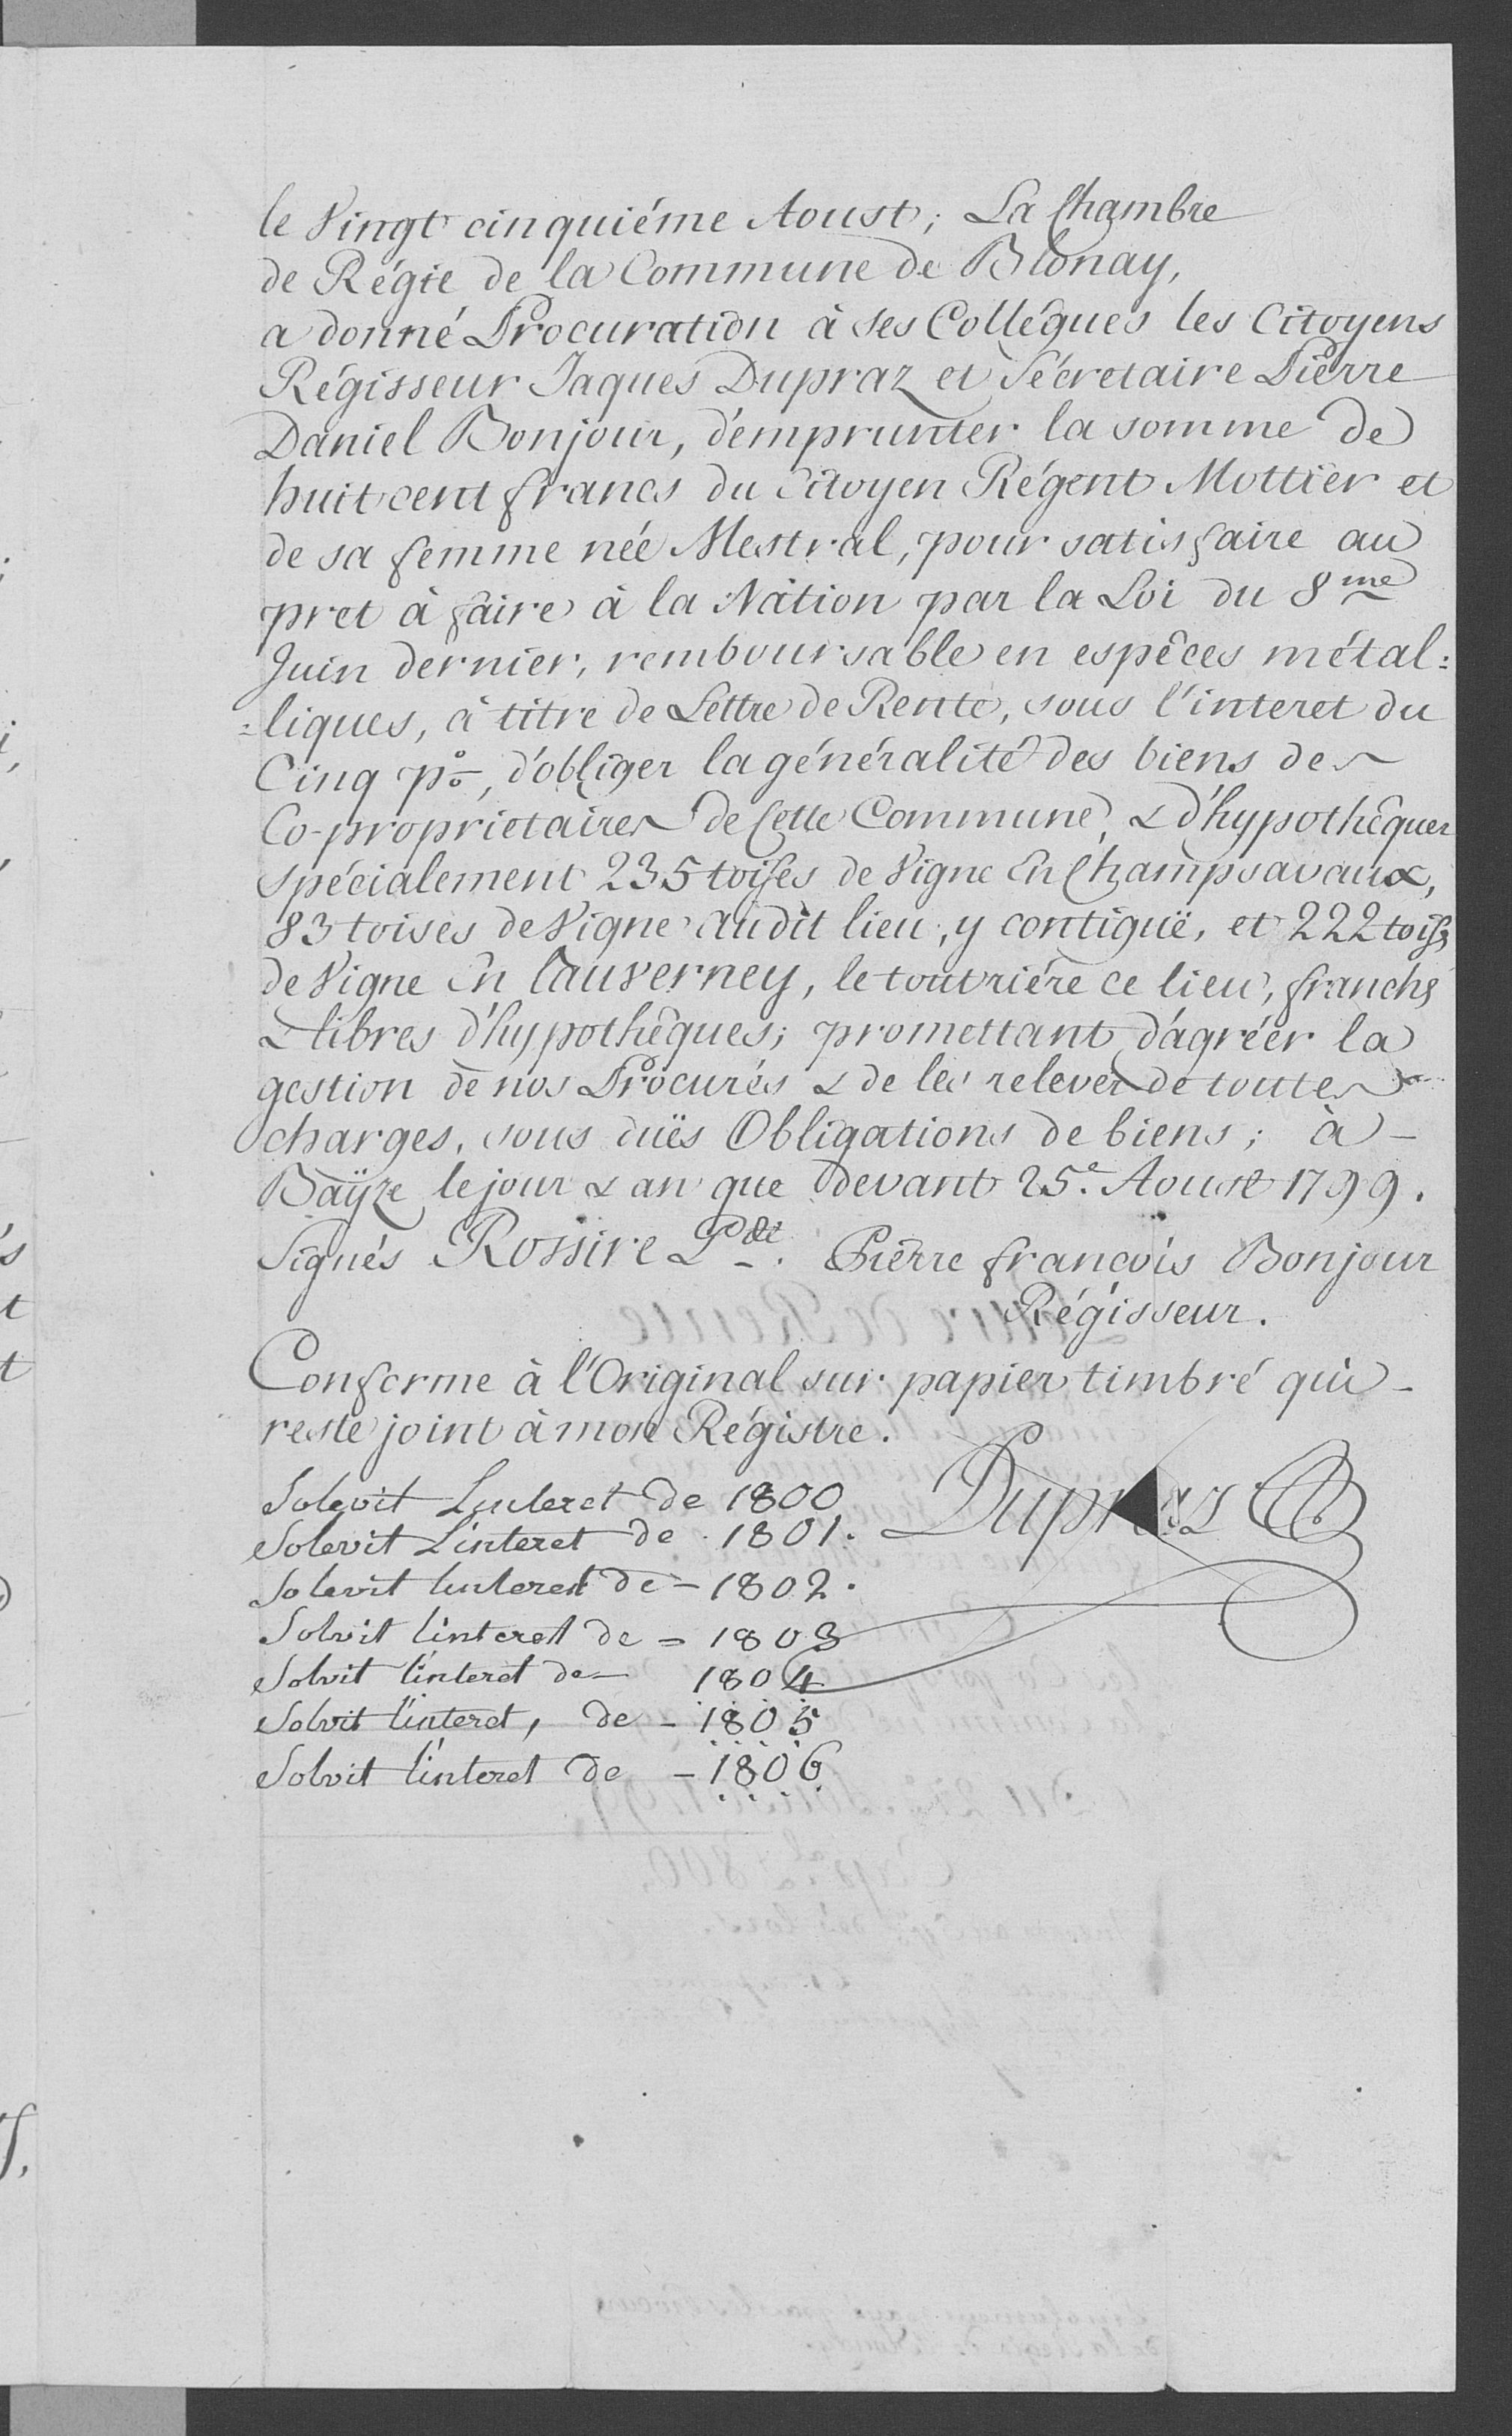 le Vingt cinquiéme Aoust; La Chambre
de Régie de la Commune de Blonay,
a donné Procuration à ses Collégues les Citoyens
Régisseur Jaques Dupraz et Sécretaire Pierre
Daniel Bonjour, d'emprunter la somme de
huit cent francs du Citoyen Régent Mottier et
de sa femme née Mestral, pour satisfaire au
pret à faire à la Nation par la Loi du 8me
Juin dernier, remboursable en espêces métal=
=liques, à titre de Lettre de Rente, sous l'interet du
Cinq p%, d'obliger la généralité des biens des
Co-proprietaires de Cette Commune, & d'hypothêquer
spécialement 235 toises de Vigne En Champsavaux,
83 toises de Vigne audit lieu, y contiguë, et 222 toises
de Vigne En Cauverney, le tout riére ce lieu, franchs
& libres d'hypothêques; promettant d'agréer la
gestion de nos Procurés & de les relever de toutes
charges, sous duës Obligations de biens; à -
Baÿze le jour & an que devant 25e. Aoust 1799.
Signés Rossire Pdt. Pierre françois Bonjour
Régisseur.
Conforme à l'Original sur papier timbré qui -
reste joint à mon Régistre.
Solevit Linteret de 1800 Dupraz
Solevit L'interet de 1801.
Solevit linterest de - 1802.
Solvit linterest de = 1803
Solvit l'interet de - 1804
Solvit l'interet, de - 1805
Solvit l'interet de - 1806